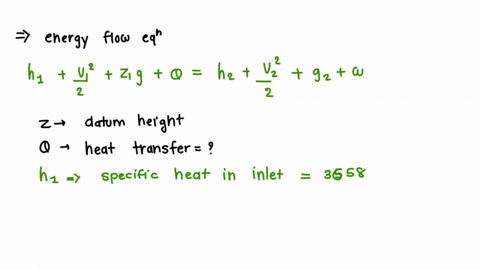 ⇒ energy flow eqⁿ
h₁ + V₁²/2 + z₁g + Q = h₂ + V₂²/2 + g₂ + ω
z → datum height
Q → heat transfer = ?
h₁ ⇒ specific heat in inlet = 3658